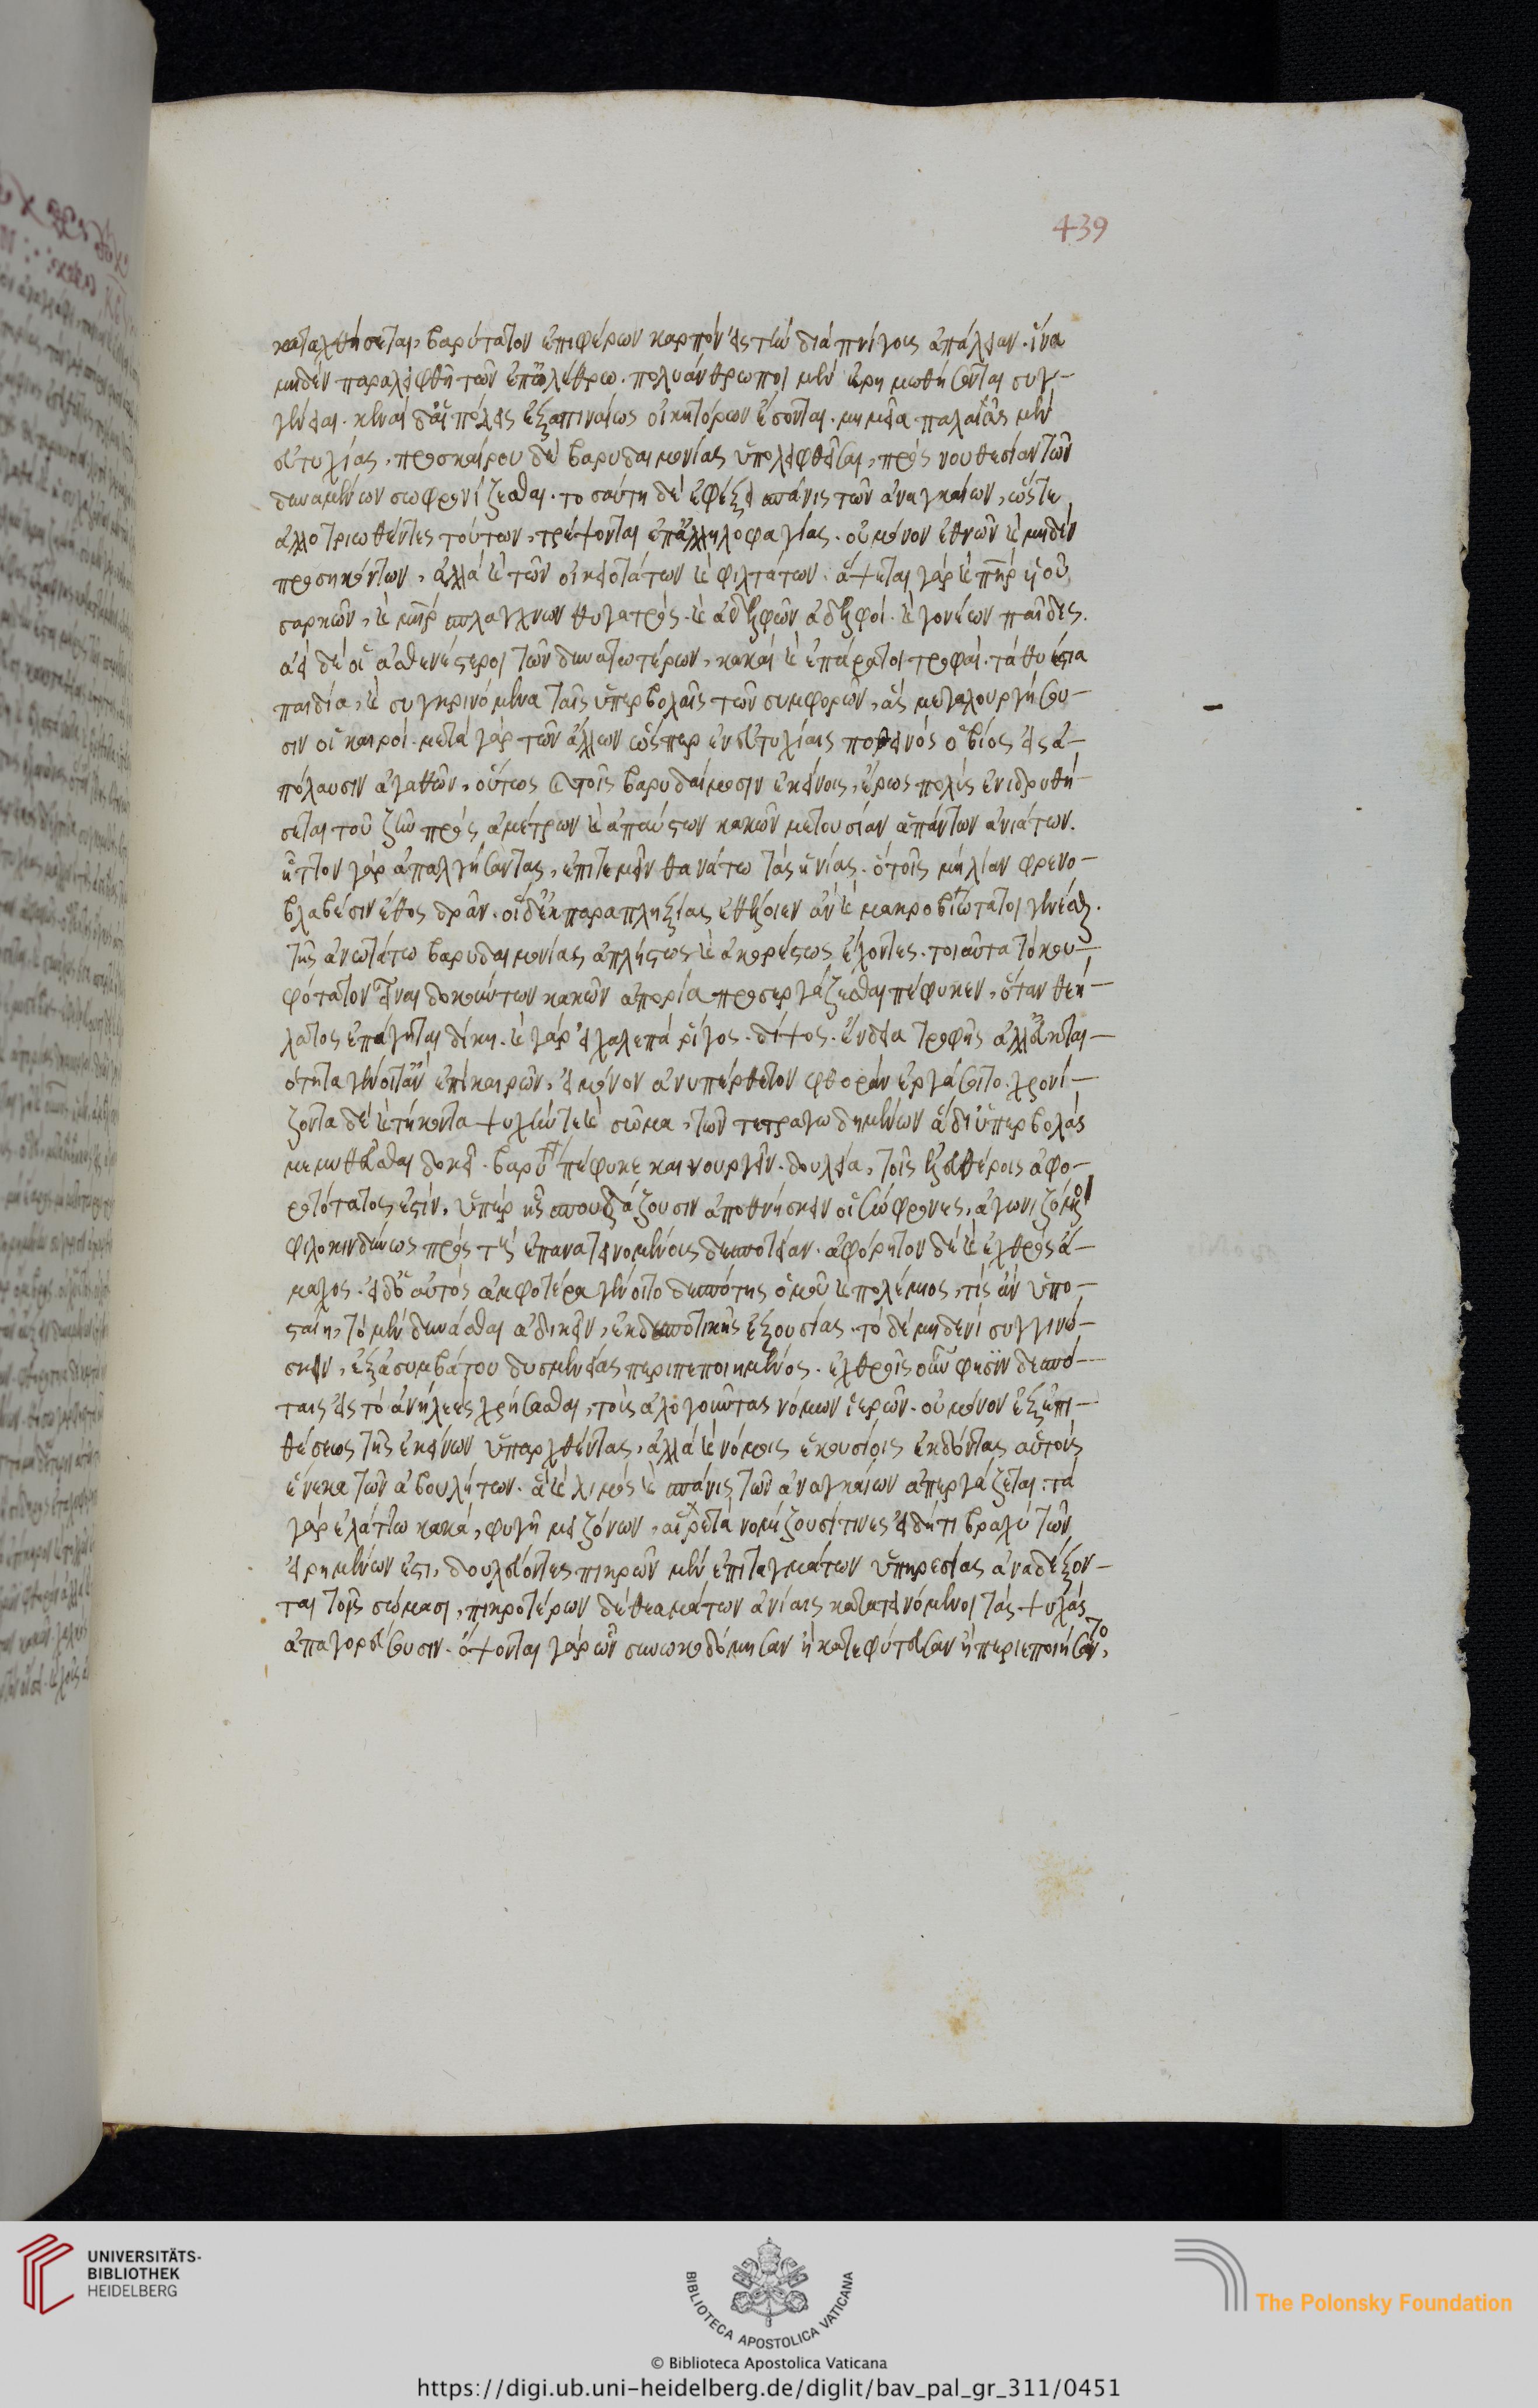 439
καταχθήσεται, βαρύτατον ἐπιφέρων καρπὸν εἰς τὴν διὰ πνίγους ἀπώλειαν. ἵνα
μηδὲν παραλειφθῆ τῶν ἐπ' ὀλέθρω. πολυάνθρωποι μὲν ἐρημωθήσονται συγ-
γένειαι. κεναὶ δ' αἱ πόλεις ἐξαπιναίως οἰκητόρων ἔσονται. μνημεῖα παλαιᾶς μὲν
εὐτυχίας, προσκαίρου δὲ βαρυδαιμονίας ὑπολειφθεῖσαι, πρὸς νουθεσίαν τῶν
δυναμένων σωφρονίζεσθαι. τοσαύτη δὲ ἐφέξει σπάνις τῶν ἀναγκαίων, ὥστε
ἀλλοτριωθέντες τούτων, τρέψονται ἐπ' ἀλληλοφαγίας. οὐ μόνον ὀθνείων καὶ μηδὲν
προσηκόντων, ἀλλὰ καὶ τῶν οἰκειοτάτων καὶ φιλτάτων. ἅψεται γὰρ καὶ πηρ υἱοῦ
σαρκῶν, καὶ μηρ σπλάγχνων θυγατρός. καὶ ἀδελφῶν ἀδελφοί. καὶ γονέων παῖδες.
ἀεὶ δὲ οἱ ἀσθενέστεροι τῶν δυνατωτέρων, κακαὶ καὶ ἐπάρατοι τροφαί. τὰ θυέστια
παιδία, καὶ συγκρινόμενα ταῖς ὑπερβολαῖς τῶν συμφορῶν, ἃς μεγαλουργήσου-
σιν οἱ καιροί. μετὰ γὰρ τῶν ἄλλων ὥσπερ ἐν εὐτυχίαις ποθεινὸς ὁ βίος εἰς ἀ-
πόλαυσιν ἀγαθῶν, οὕτως καὶ τοῖς βαρυδαίμοσιν ἐκείνοις, ἔρως πολὺς ἐνιδρυθή-
σεται τοῦ ζῆν πρὸς ἀμέτρων καὶ ἀπαύστων κακῶν μετουσίαν ἁπάντων ἀνιάτων.
ἧττον γὰρ ἀπαλγήσαντας, ἐπιτεμεῖν θανάτω τὰς ἀνίας. ὃ τοῖς μὴ λίαν φρενο-
βλαβέσιν ἔθος δρᾶν. οἱ δ' ἐκ παραπληξίας ἐθέλοιεν ἂν καὶ μακροβιώτατοι γενέσθαι.
τῆς ἀνωτάτω βαρυδαιμονίας ἀπλήστως καὶ ἀκορέστως ἔχοντες. τοιαῦτα τὸ κου-
φότατον εἶναι δοκούντων κακῶν ἀπορία προσεργάζεσθαι πέφυκεν, ὅταν θεή-
λατος ἐπάγηται δίκη. καὶ γὰρ εἰ χαλεπὰ ῥῖγος. δίψος. ἔνδεια τροφῆς ἀλλ' εὐκται-
ότητα γένοιτ' ἂν ἐπὶ καιρῶν, εἰ μόνον ἀνυπέρθετον φθορὰν ἐργάσαιτο. χρονί-
ζοντα δὲ καὶ τήκοντα ψυχήν τε καὶ σῶμα, τῶν τετραγωδημένων ἃ δι' ὑπερβολὰς
μεμυθεῦσθαι δοκεῖ. βαρύτερα πέφυκε καινουργεῖν. δουλεία, τοῖς ἐλευθέροις ἀφο-
ρητότατος ἐστίν, ὑπὲρ ἧς σπουδάζουσιν ἀποθνήσκειν οἱ σώφρονες, ἀγωνιζόμενοι
φιλοκινδύνως πρὸς τοὺς ἐπανατεινομένους δεσποτείαν. ἀφόρητον δὲ καὶ ἐχθρὸς ἄ-
μαχος. εἰ δ' ὁ αὐτὸς ἀμφότερα γένοιτο δεσπότης ὁμοῦ καὶ πολέμιος, τίς ἂν ὑπο-
σταίη, τὸ μὲν δύνασθαι ἀδικεῖν, ἐκ δεσποτικῆς ἐξουσίας. τὸ δὲ μηδενὶ συγγινώ-
σκειν, ἐξ ἀσυμβάτου δυσμενείας περιπεποιημένος. ἐχθροῖς οὖν φησὶν δεσπό-
ταις εἰς τὸ ἀνηλεὲς χρήσασθαι, τοὺς ἀλογοῦντας νόμων ἱερῶν. οὐ μόνον ἐξ ἐπι-
θέσεως τῆς ἐκείνων ὑπαρχθέντας, ἀλλὰ καὶ νόμοις ἑκουσίοις ἐκδόντας αὑτοὺς
ἕνεκα τῶν ἀβουλήτων. ἃ καὶ λιμὸς καὶ σπάνις τῶν ἀναγκαίων ἀπεργάζεται. τὰ
γὰρ ἐλάττω κακά, φυγῆ μειζόνων, αἱρετὰ νομίζουσί τινες εἰ δή τι βραχὺ τῶν
εἰρημένων ἐστι, δουλεύοντες πικρῶν μὲν ἐπιταγμάτων ὑπηρεσίας ἀναδέξον-
ται τοῖς σώμασι, πικροτέρων δὲ θεαμάτων ἀνίαις κατατεινόμενοι τὰς ψυχὰς
ἀπαγορεύσουσιν. ὄψονται γὰρ ὧν συνωκοδόμησαν ἢ κατεφύτευσαν ἢ περιεποιήσαντο,
UNIVERSITÄTS-
BIBLIOTHEK
HEIDELBERG
BIBLIOTECA APOSTOLICA VATICANA
The Polonsky Foundation
© Biblioteca Apostolica Vaticana
https://digi.ub.uni-heidelberg.de/diglit/bav_pal_gr_311/0451